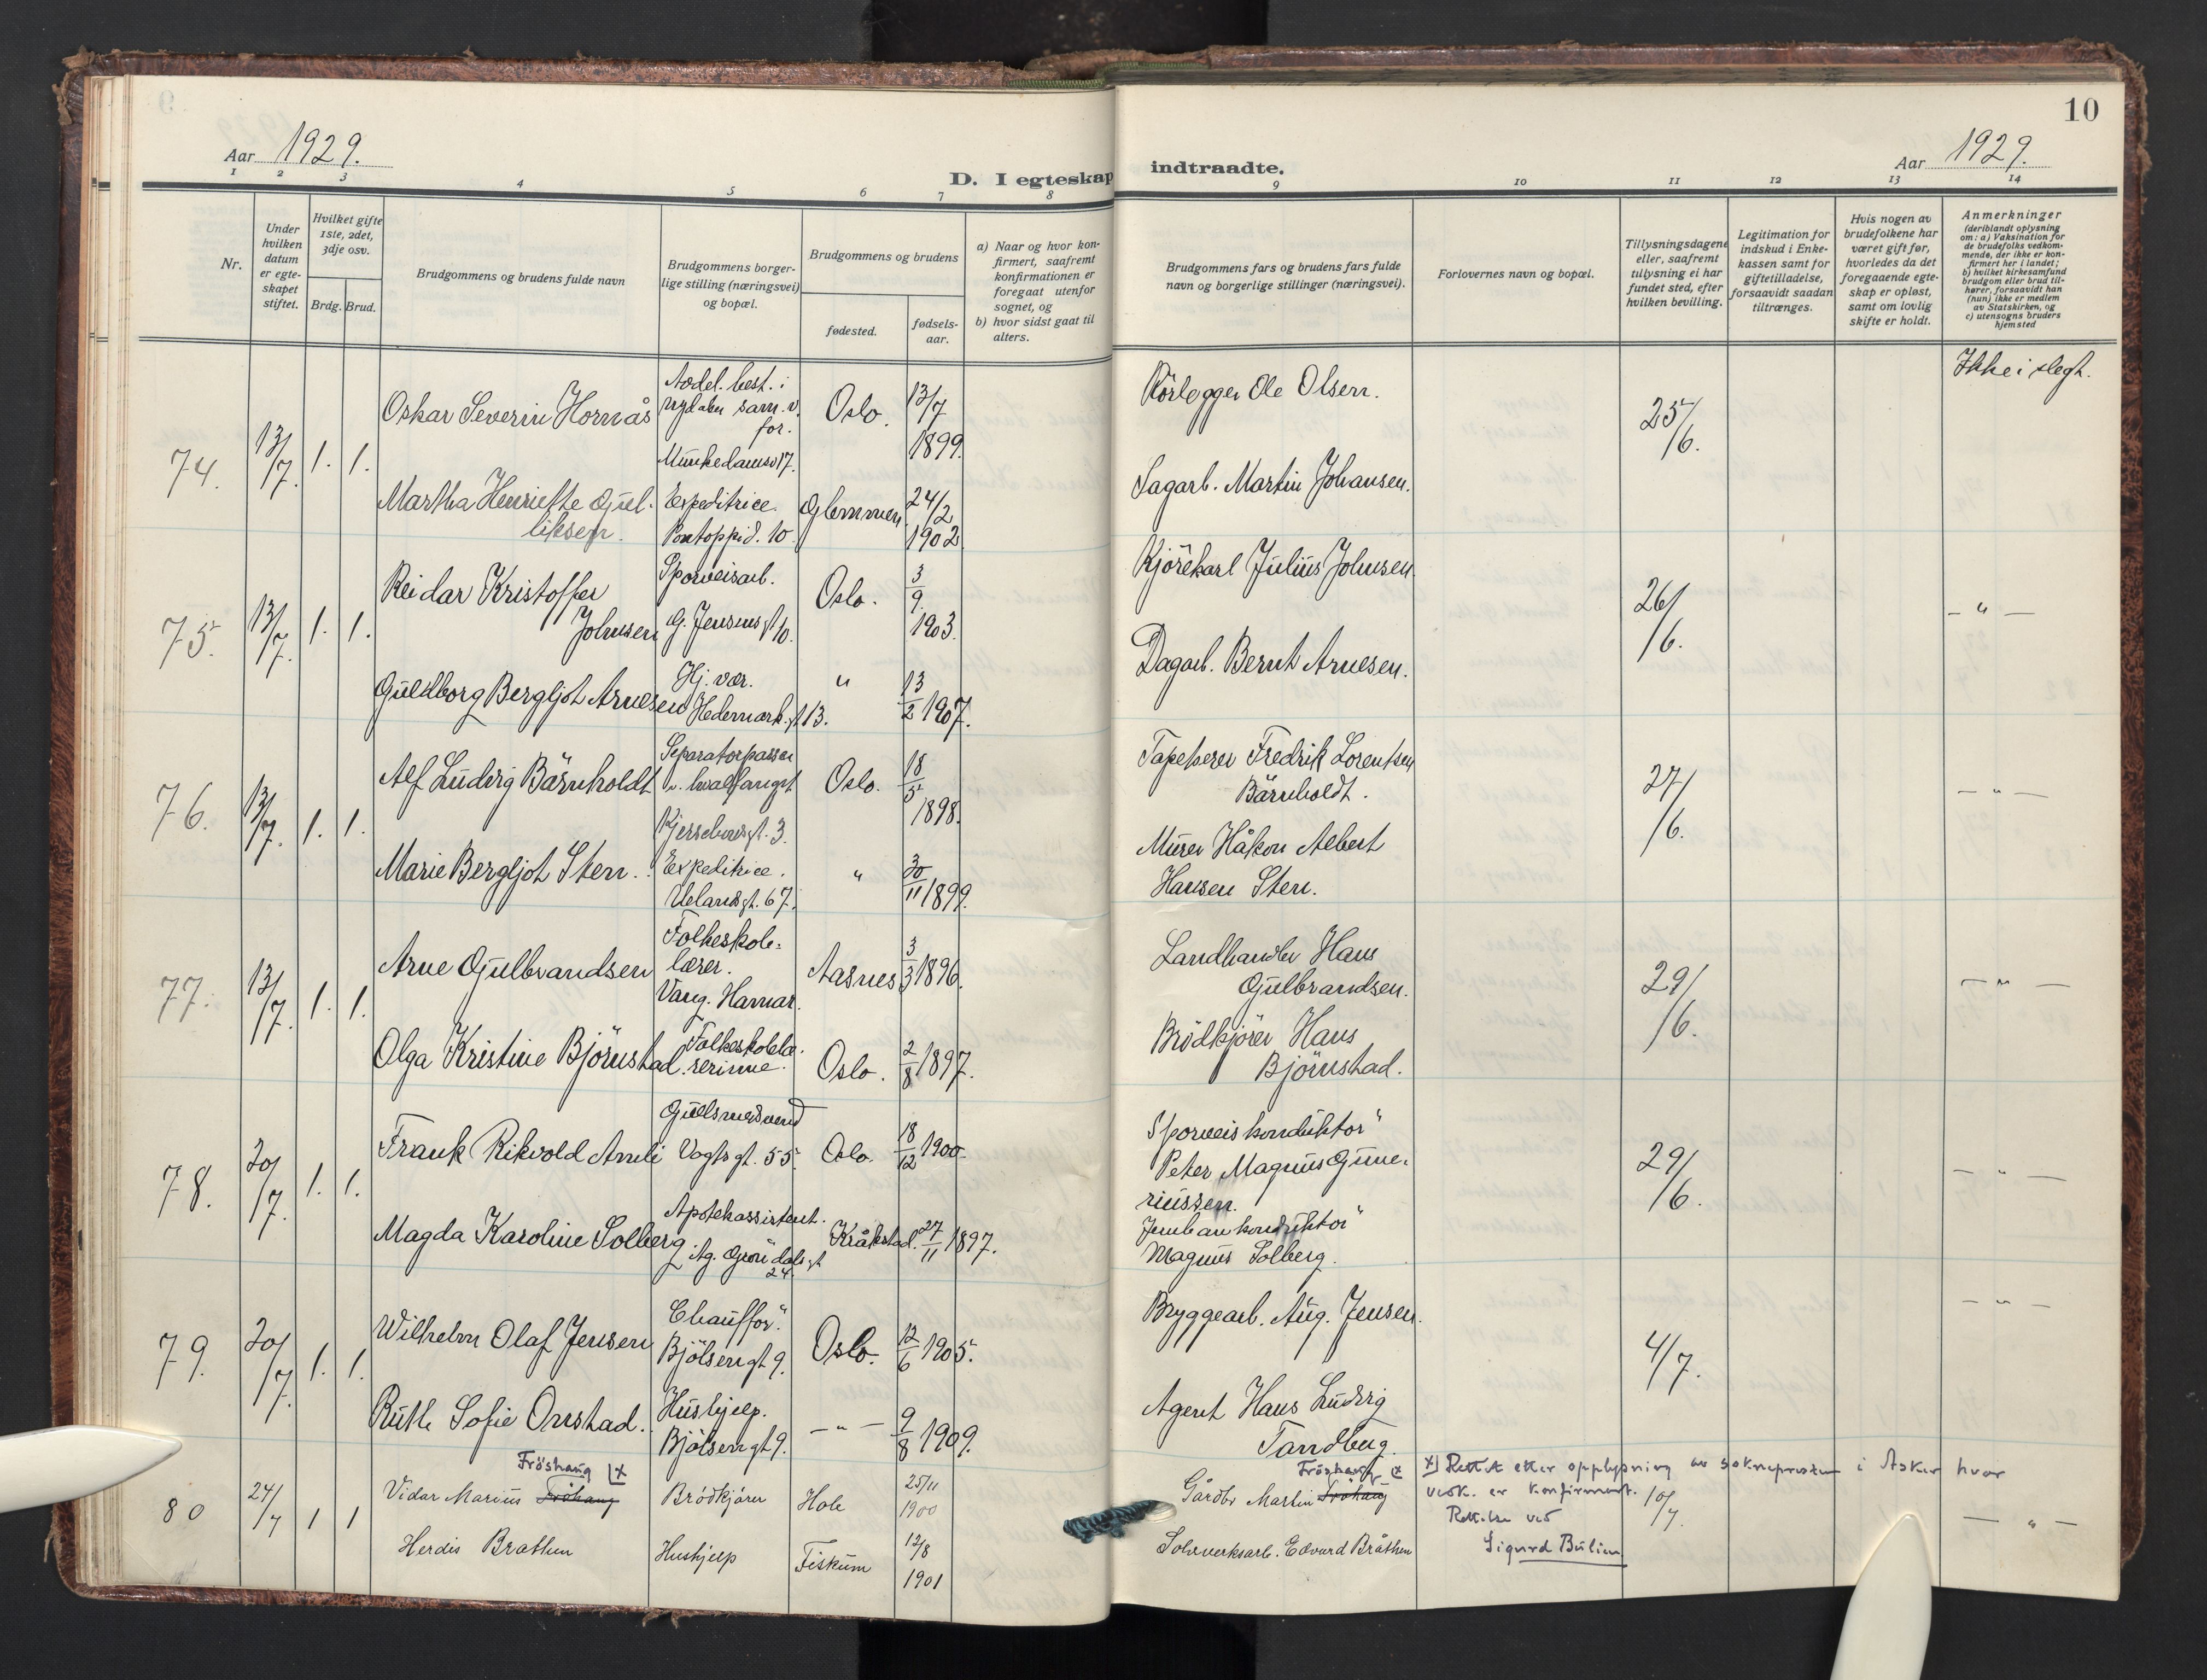 10
Aar 1929.
D. I egteskap indtraadte.
Aar 1929.
1 2 3 4 5 6 7 8 9 10 11 12 13 14
Nr.
Under hvilken datum er egteskapet stiftet.
Hvilket gifte 1ste, 2det, 3dje osv.
Brdg. Brud.
Brudgommens og brudens fulde navn
Brudgommens borgerlige stilling (næringsvei) og bopæl.
Brudgommens og brudens
fødested.
fødselsaar.
a) Naar og hvor konfirmert, saafremt konfirmationen er foregaat utenfor sognet, og
b) hvor sidst gaat til alters.
Brudgommens fars og brudens fars fulde navn og borgerlige stillinger (næringsvei).
Forlovernes navn og bopæl.
Tillysningsdagene eller, saafremt tillysning ei har fundet sted, efter hvilken bevilling.
Legitimation for indskud i Enkekassen samt for giftetilladelse, forsaavidt saadan tiltrænges.
Hvis nogen av brudefolkene har været gift før, hvorledes da det foregaaende egteskap er opløst, samt om lovlig skifte er holdt.
Anmerkninger (deriblandt oplysning om: a) Vaksination for de brudefolks vedkommende, der ikke er konfirmert her i landet; b) hvilket kirkesamfund brudgom eller brud tilhører, forsaavidt han (hun) ikke er medlem av Statskirken, og c) utensogns bruders hjemsted
74. 13/7. 1. 1. Oskar Severin Hornås
Avdel. best. i
sam. v.
for.
Munkedamsv 17.
Oslo. 13/7 1899.
Rörlegger Ole Olsen. 25/6. Ikke i slegt.
Martha Henriette Gul-
liksen.
Expeditrice.
Pontoppid. 10.
Glemmen 24/2 1902
Sagarb. Martin Johansen.
75. 13/7. 1. 1. Reidar Kristoffer
Johnsen
Sporveisarb.
G. Jensens gt 10.
Oslo. 3/9. 1903.
Kjörekarl Julius Johnsen. 26/6. — " —
Guldborg Bergljot Arnesen
Hj. vær.
Hedemark. gt 13.
" 13/2 1907.
Dagarb. Bernt Arnesen.
76. 13/7. 1. 1. Alf Ludvig Bärnholdt
Separatorpasser
v. hvalfangst
Oslo. 18/5 1898.
Tapetserer Fredrik Lorentsen
Bärnholdt. 27/6. — " —
Marie Bergljot Sten.
Expeditrice.
Uelandsgt. 67.
" 30/11 1899.
Murer Håkon Albert
Hansen Sten.
77. 13/7. 1. 1. Arne Gulbrandsen
Folkeskole-
lærer.
Vang. Hamar.
Aasnes 3/3 1896.
Landhandler Hans
Gulbrandsen. 29/6. — " —
Olga Kristine Björnstad.
Folkeskolelæ-
rerinne.
Oslo. 2/8 1897.
Brödkjörer Hans
Björnstad.
78. 20/7. 1. 1. Frank Rikvold Amli
Gullsmedsvend
Vogts gt. 55.
Oslo. 18/12 1900.
Sporveiskonduktör
Peter Magnus Gune-
riussen. 29/6. — " —
Magda Karoline Solberg
Apotekassistent.
Ag. Gröndals gt
24.
Kråkstad. 27/11 1897.
Jernbanekonduktör
Magnus Solberg.
79. 20/7. 1. 1. Wilhelm Olaf Jensen
Chaufför.
Bjölsengt 9.
Oslo. 12/6 1905.
Bryggearb. Aug. Jensen. 4/7. — " —
Ruth Sofie Onstad.
Hushjelp.
Bjölsengt 9.
— " — 9/8 1909.
Agent Hans Ludvig
Tandberg.
Fröshaug x
80 24/7 1 1 Vidar Marius Fröhaug
Brödkjörer Hole 25/11 1900
Fröshaug x
Gårdbr Martin Fröhaug
x) Rettet etter opplysning av soknepresten i Asker hvor
vedk. er konfirmert. 10/7.
Rettelse ved
Sigurd Bulien
— " —
Herdis Bråthen
Hushjelp Fiskum 12/8 1901
Solvverksarb. Edvard Bråthen